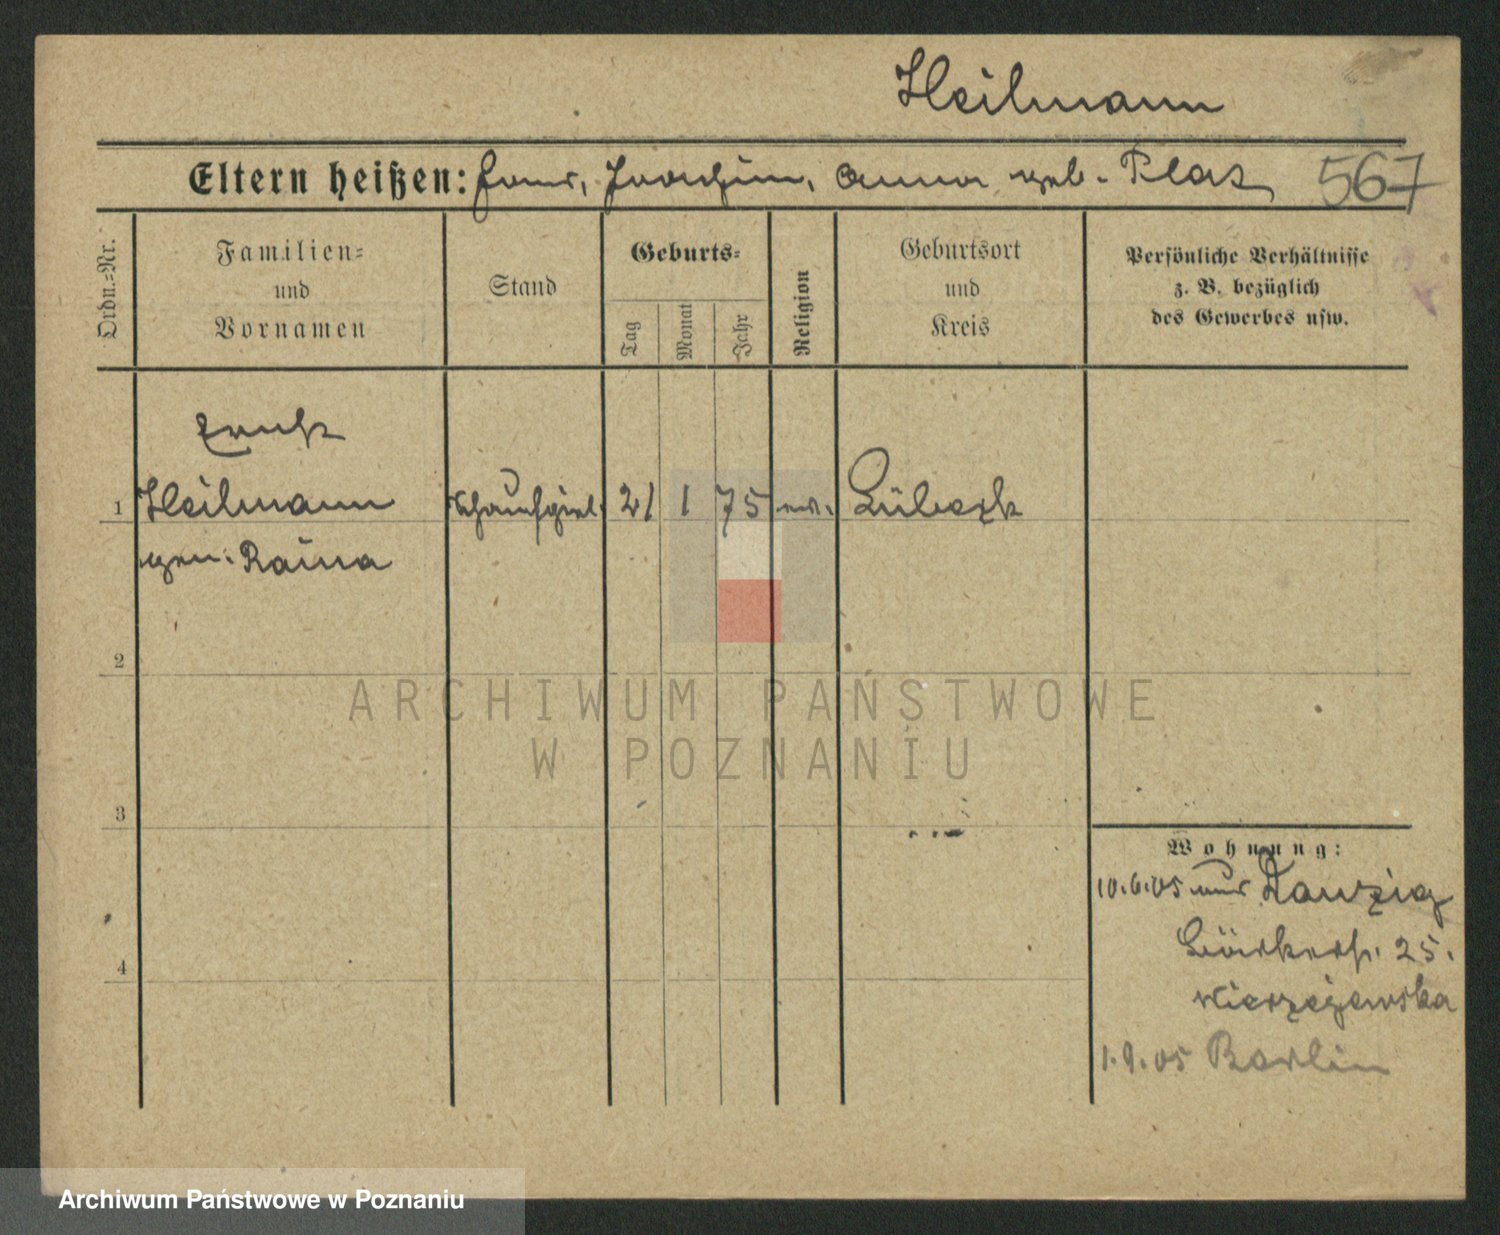 Heilmann
Eltern heißen: Hans, Joachim, Anna geb. Plas 567
Ordn.=Nr.
Familien=
und
Vornamen
Stand
Geburts=
Tag
Monat
Jahr
Religion
Geburtsort
und
Kreis
Persönliche Verhältnisse
z. B. bezüglich
des Gewerbes usw.
Ernst
1 Heilmann Schauspiel. 21 1 75 ev. Lübeck
gen. Raina
2
3
4
Wohnung:
10.6.05 aus Danzig
25.
1.9.05 Berlin
ARCHIWUM PAŃSTWOWE
W POZNANIU
Archiwum Państwowe w Poznaniu